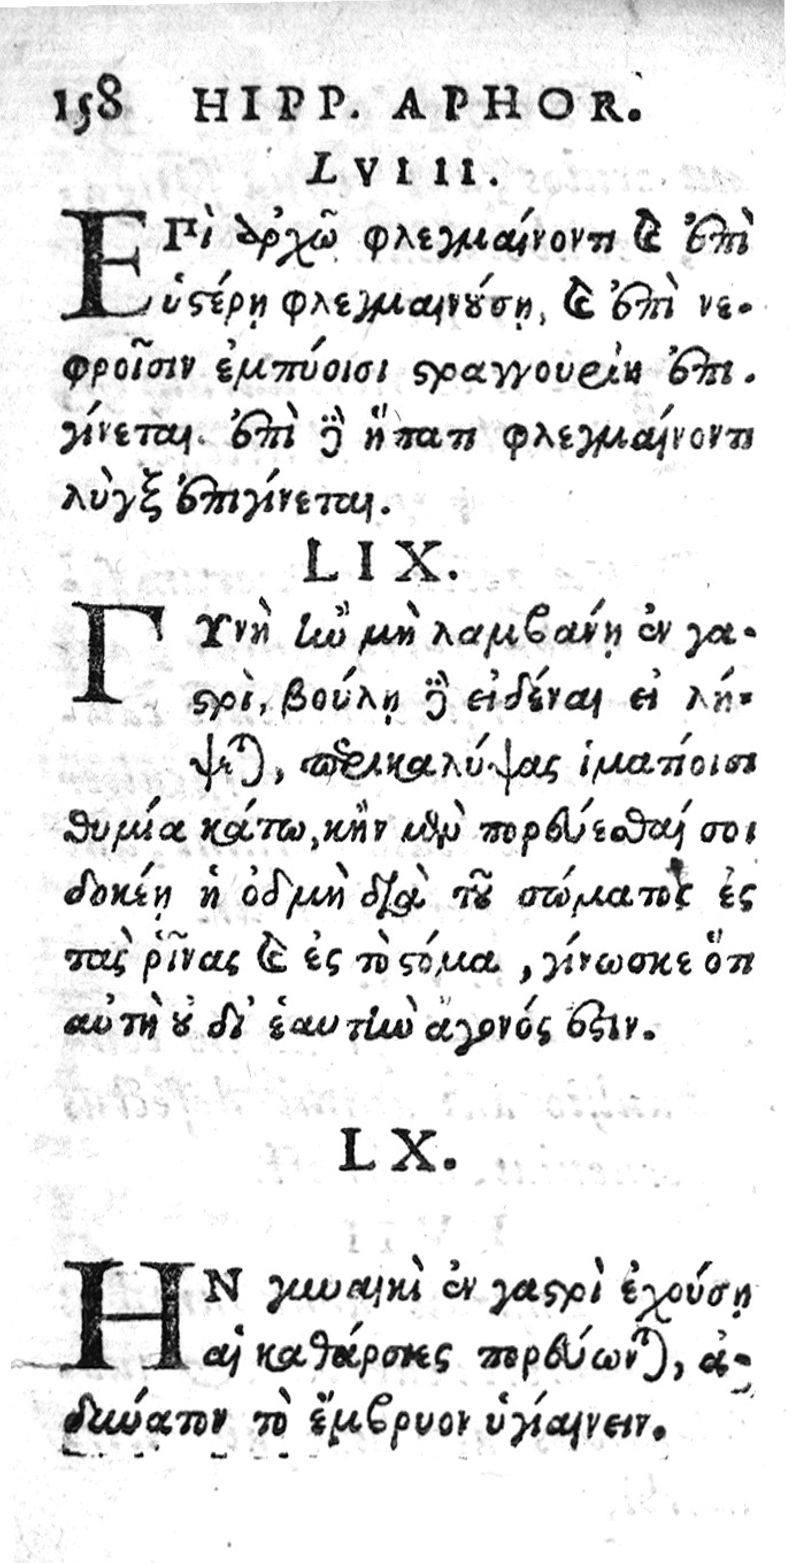 158 HIPP. APHOR.
LVIII.
ΕΠὶ ἀρχῷ φλεγμαίνοντι καὶ ἐπὶ
ὑστέρῃ φλεγμαινούσῃ, καὶ ἐπὶ νε-
φροῖσιν ἐμπύοισι στραγγουρίη ἐπι-
γίνεται. ἐπὶ δὲ ἥπατι φλεγμαίνοντι
λὺγξ ἐπιγίνεται.
LIX.
ΓΥνὴ ἢν μὴ λαμβανῃ ἐν γα-
στρὶ, βούλῃ δὲ εἰδέναι εἰ λή-
ψεται, περικαλύψας ἱματίοισι
θυμία κάτω, κἢν μὲν πορεύεσθαί σοι
δοκέῃ ἡ ὀδμὴ διὰ τοῦ στώματος ἐς
τὰς ῥῖνας καὶ ἐς τὸ στόμα, γίνωσκε ὅτι
αὐτὴ οὐ δι' ἑαυτὴν ἄγονός ἐστιν.
LX.
ΗΝ γυναικὶ ἐν γαστρὶ ἐχούσῃ
αἱ καθάρσιες πορεύωνται, ἀ-
δύνατον τὸ ἔμβρυον ὑγιαίνειν.